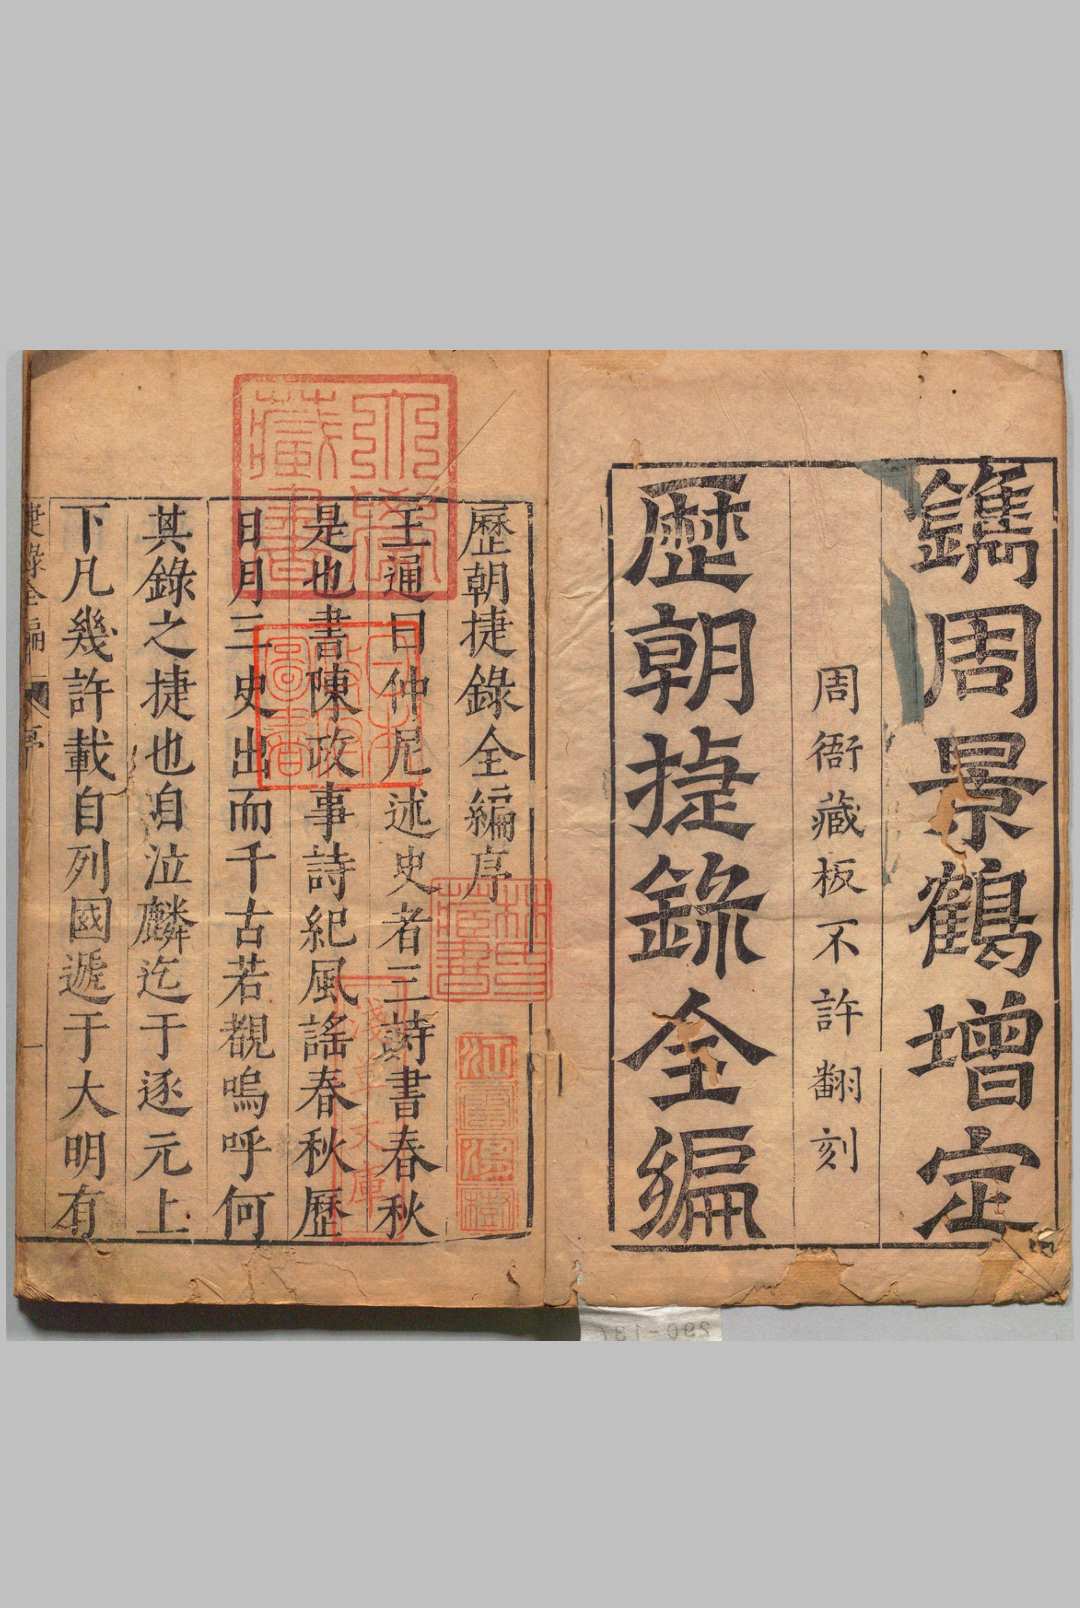 鐫周景鶴增定
周衙藏板不許翻刻
歷朝捷錄全編
歷朝捷錄全編序
王通曰仲尼述史者三詩書春秋
是也書陳政事詩紀風謠春秋歷
日月三史出而千古若覩嗚呼何
其錄之捷也自泣麟迄于逐元上
下凡幾許載自列國遞于大明有
捷錄全編
序
一
藏書
圖書
林氏藏書
淺草文庫
290-137